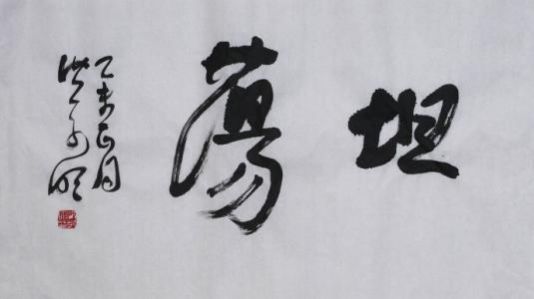 坦蕩
乙未正月